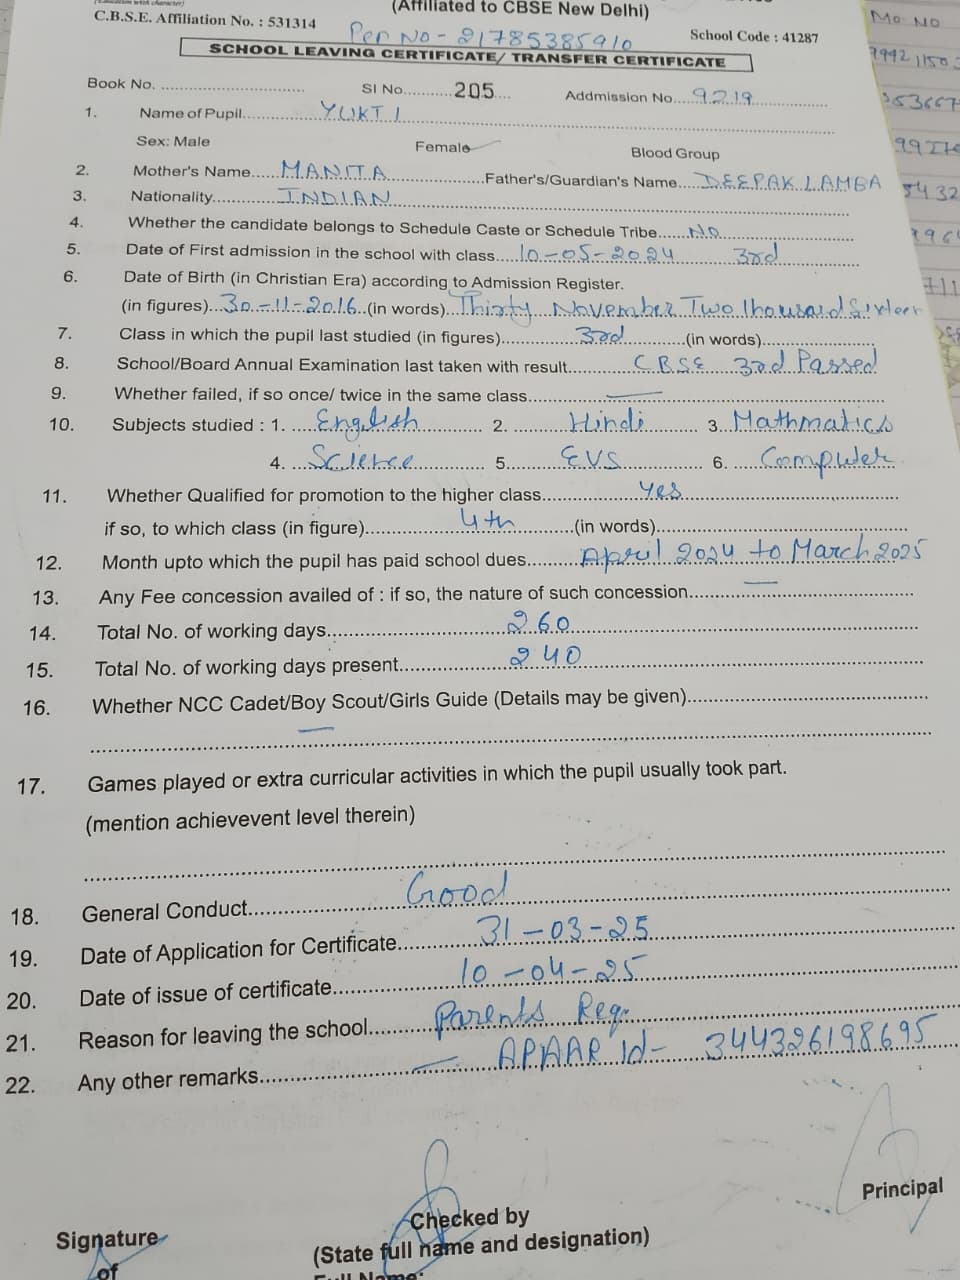 (Affiliated to CBSE New Delhi)
C.B.S.E. Affiliation No. : 531314
Pen No - 21785385910
School Code : 41287
SCHOOL LEAVING CERTIFICATE/ TRANSFER CERTIFICATE
Book No. ............ Sl No. ............ 205 .... Addmission No. .... 9219 ............
1. Name of Pupil ............ YUKTI ............
Sex: Male Female Blood Group
2. Mother's Name ...... MANITA ............ Father's/Guardian's Name .... DEEPAK LAMBA
3. Nationality ............ INDIAN ............
4. Whether the candidate belongs to Schedule Caste or Schedule Tribe ...... No ............
5. Date of First admission in the school with class .... 10-05-2024 3rd ............
6. Date of Birth (in Christian Era) according to Admission Register.
(in figures) .. 30-11-2016 .. (in words) .. Thirty November Two Thousand Sixteen
7. Class in which the pupil last studied (in figures) ............ 3rd ............ (in words) ............
8. School/Board Annual Examination last taken with result ............ CBSE 3rd Passed
9. Whether failed, if so once/ twice in the same class ............ —
10. Subjects studied : 1. .... English ...... 2. ............ Hindi ............ 3. Mathmatics
4. .... Science ............ 5. ............ EVS ............ 6. ...... Computer
11. Whether Qualified for promotion to the higher class ............ yes ............
if so, to which class (in figure) ............ 4th ............ (in words) ............
12. Month upto which the pupil has paid school dues ............ April 2024 to March 2025
13. Any Fee concession availed of : if so, the nature of such concession ............ —
14. Total No. of working days ............ 260 ............
15. Total No. of working days present ............ 240 ............
16. Whether NCC Cadet/Boy Scout/Girls Guide (Details may be given) ............
—
17. Games played or extra curricular activities in which the pupil usually took part.
(mention achievevent level therein)
18. General Conduct ............ Good ............
19. Date of Application for Certificate ............ 31-03-25 ............
20. Date of issue of certificate ............ 10-04-25 ............
21. Reason for leaving the school ............ Parents Req. ............
22. Any other remarks ............ — APAAR Id - 344326198695
Principal
Checked by
Signature
(State full name and designation)
of
Mo No